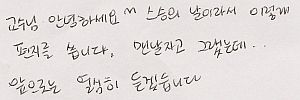 교수님 안녕하세요 ^^ 스승의 날이라서 이렇게
편지를 씁니다, 맨날자고 그랬는데..
앞으로는 열심히 듣겠습니다